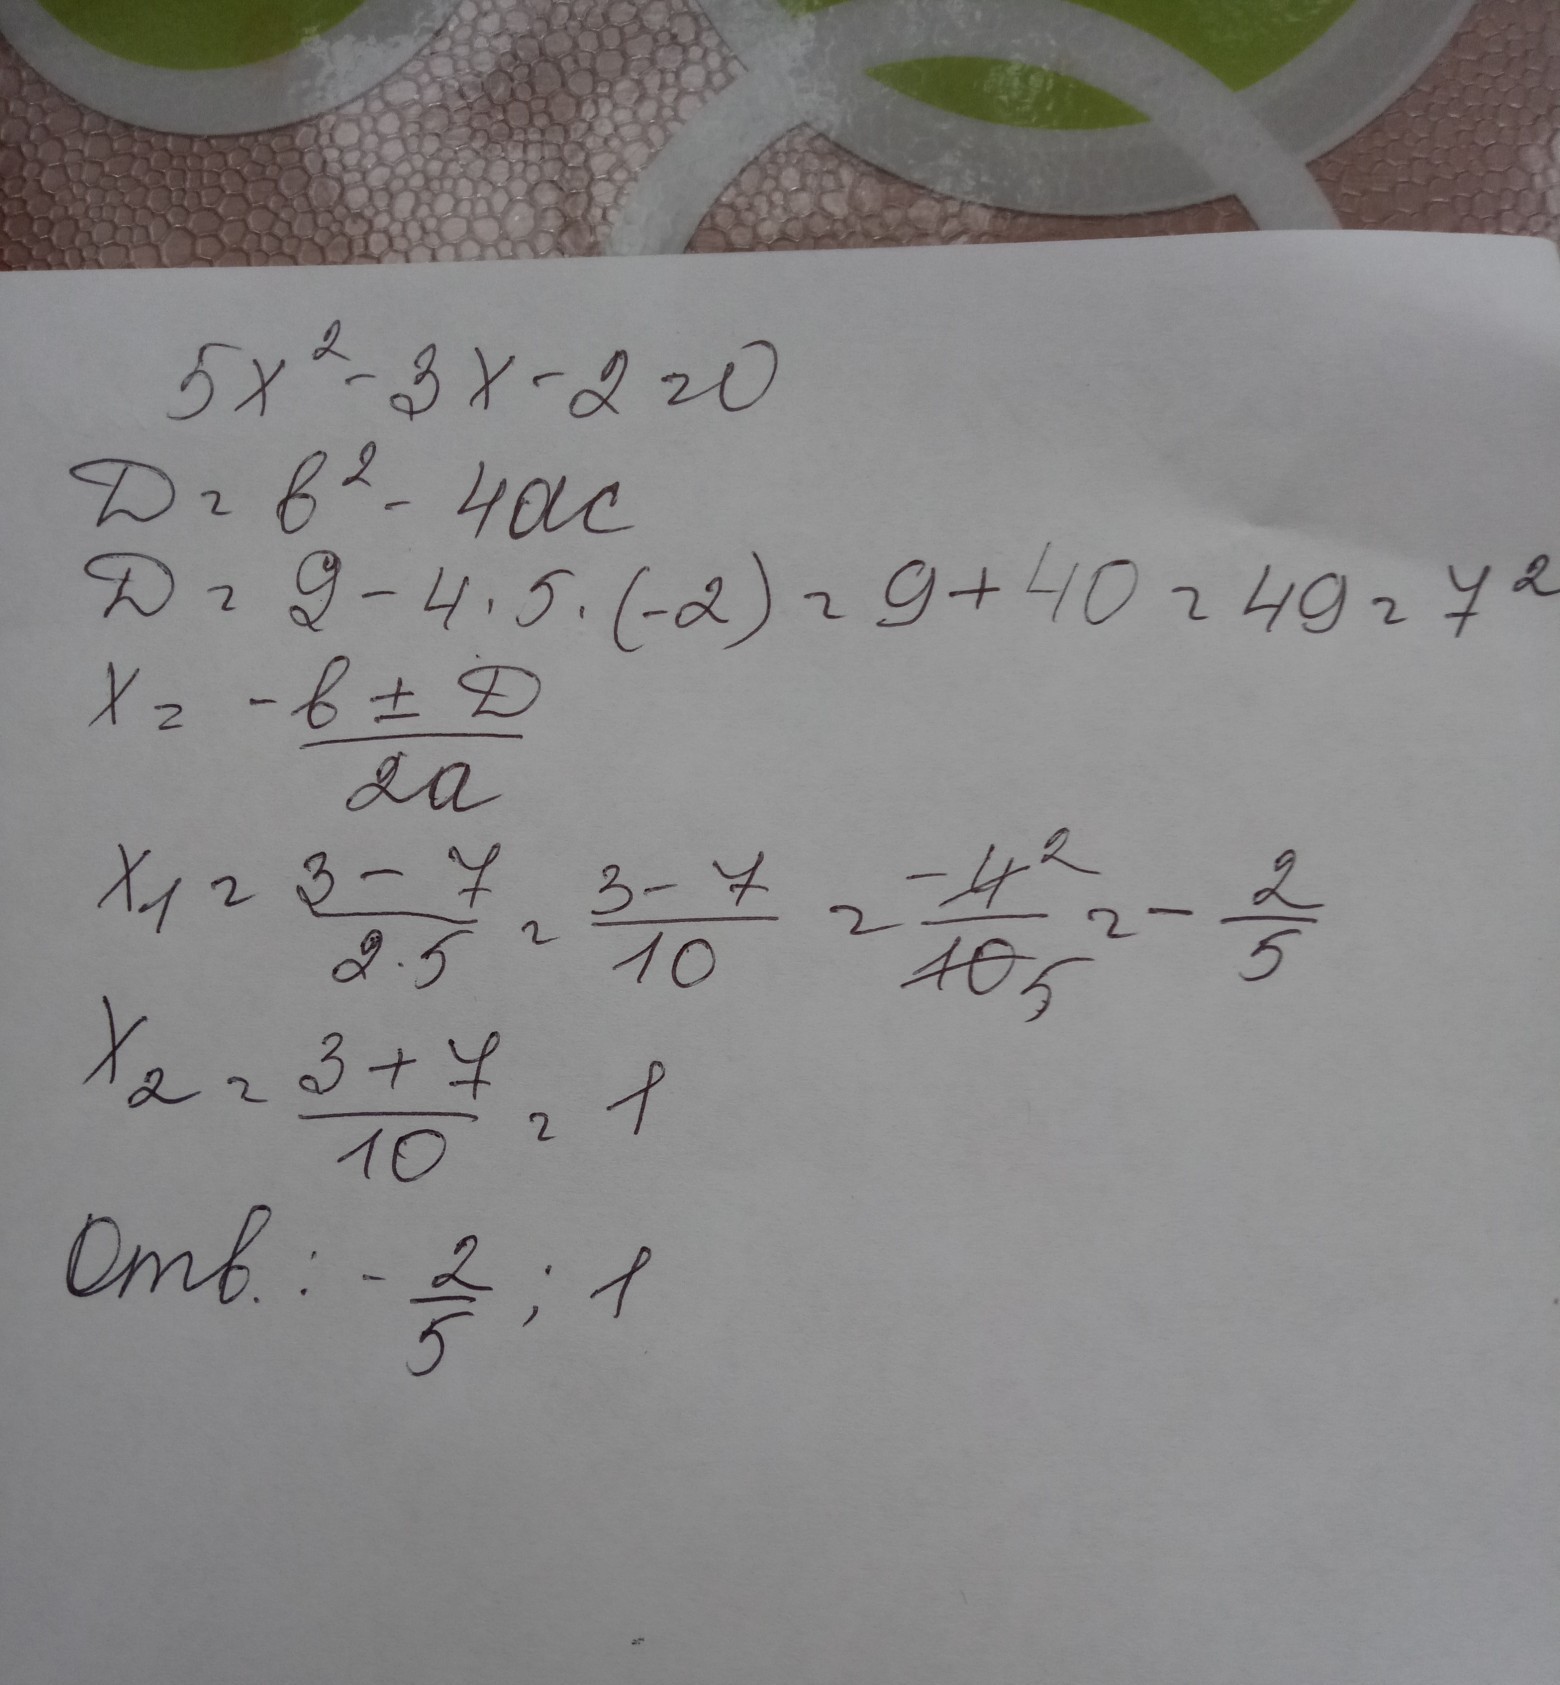 5x² - 3x - 2 = 0
D = b² - 4ac
D = 9 - 4 · 5 · (-2) = 9 + 40 = 49 = 7²
x = -b ± D / 2a
x₁ = 3 - 7 / 2 · 5 = 3 - 7 / 10 = -4 2 / 10 5 = - 2/5
x₂ = 3 + 7 / 10 = 1
Отв.: - 2/5 ; 1